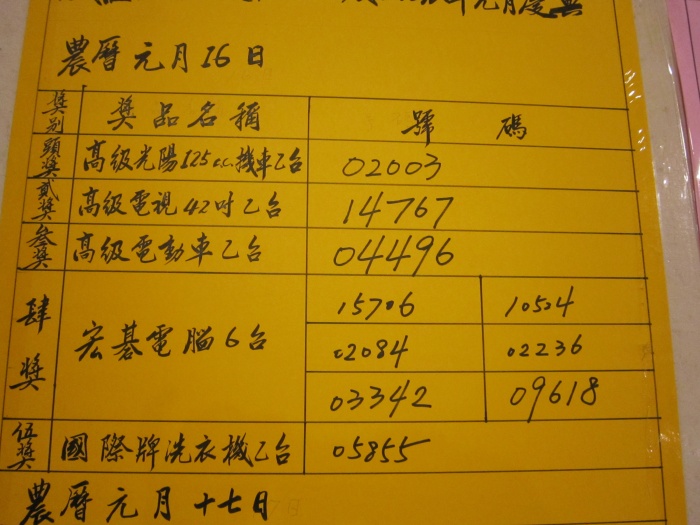 元月慶典
農曆元月16日
獎別 獎品名稱 號碼
頭獎 高級光陽125cc機車乙台 02003
貳獎 高級電視42吋乙台 14767
叁獎 高級電動車乙台 04496
肆獎 宏碁電腦6台 15706 10504
02084 02236
03342 09618
伍獎 國際牌洗衣機乙台 05855
農曆元月十七日